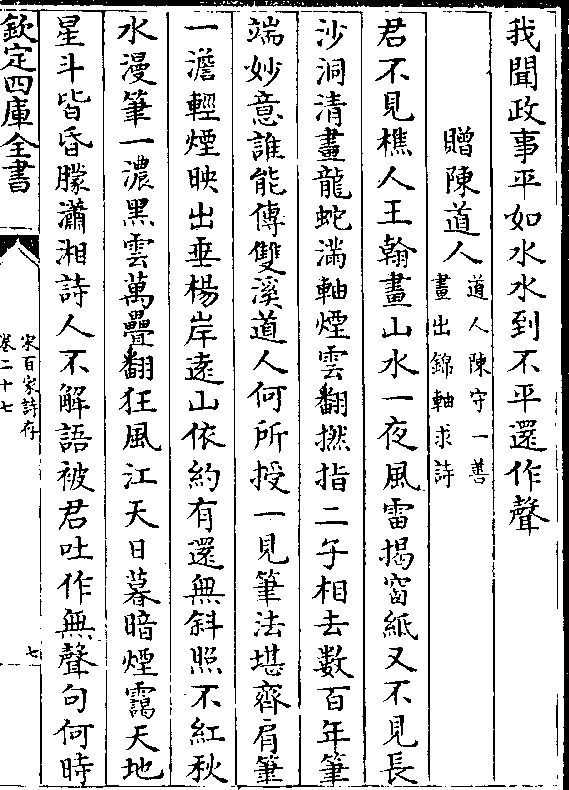 我聞政事平如水水到不平還作聲
贈陳道人
道人陳守一善
畫出錦軸求詩
君不見樵人王翰畫山水一夜風雷揭窗紙又不見長
沙洞清畫龍蛇滿軸煙雲翻撚指二子相去數百年筆
端妙意誰能傳雙溪道人何所授一見筆法堪齊肩筆
一澹輕煙映出垂楊岸遠山依約有還無斜照不紅秋
水漫筆一濃黑雲萬疊翻狂風江天日暮暗煙靄天地
星斗皆昏朦瀟湘詩人不解語被君吐作無聲句何時
欽定四庫全書
宋百家詩存
卷二十七
七